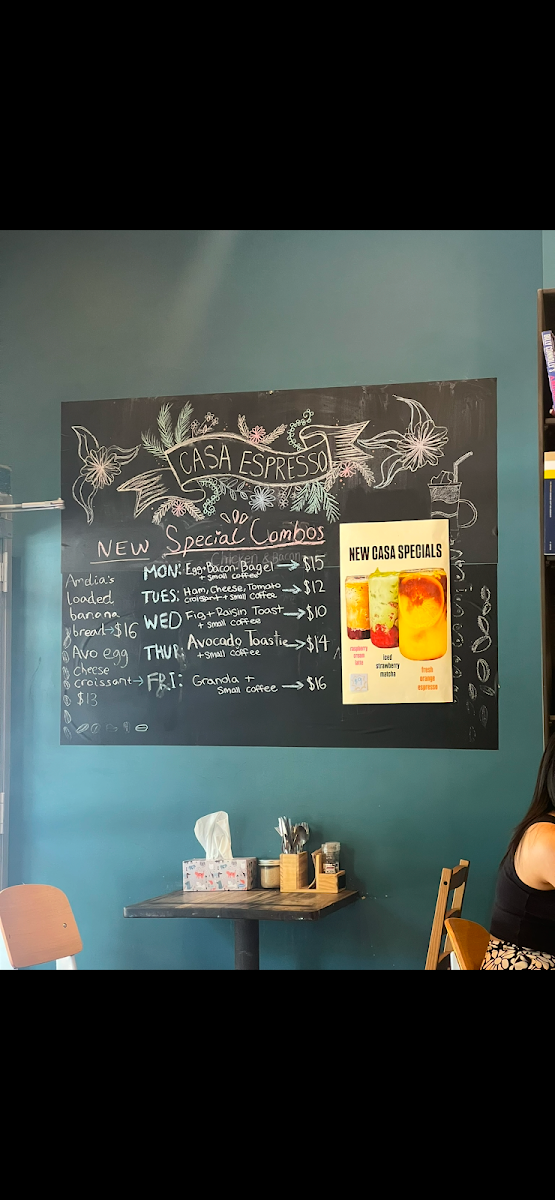 CASA ESPRESSO
NEW Special Combos
Chicken & Bacon
MON: Egg-Bacon-Bagel → $15
+ small coffee
TUES: Ham, Cheese, Tomato → $12
croissant + small coffee
WED Fig + Raisin Toast → $10
+ small coffee
THUR: Avocado Toastie → $14
+ small coffee
FRI: Granola + → $16
small coffee
loaded
banana
bread → $16
Avo egg
cheese
croissant →
$13
NEW CASA SPECIALS
raspberry
cream
latte
iced
strawberry
matcha
fresh
orange
espresso